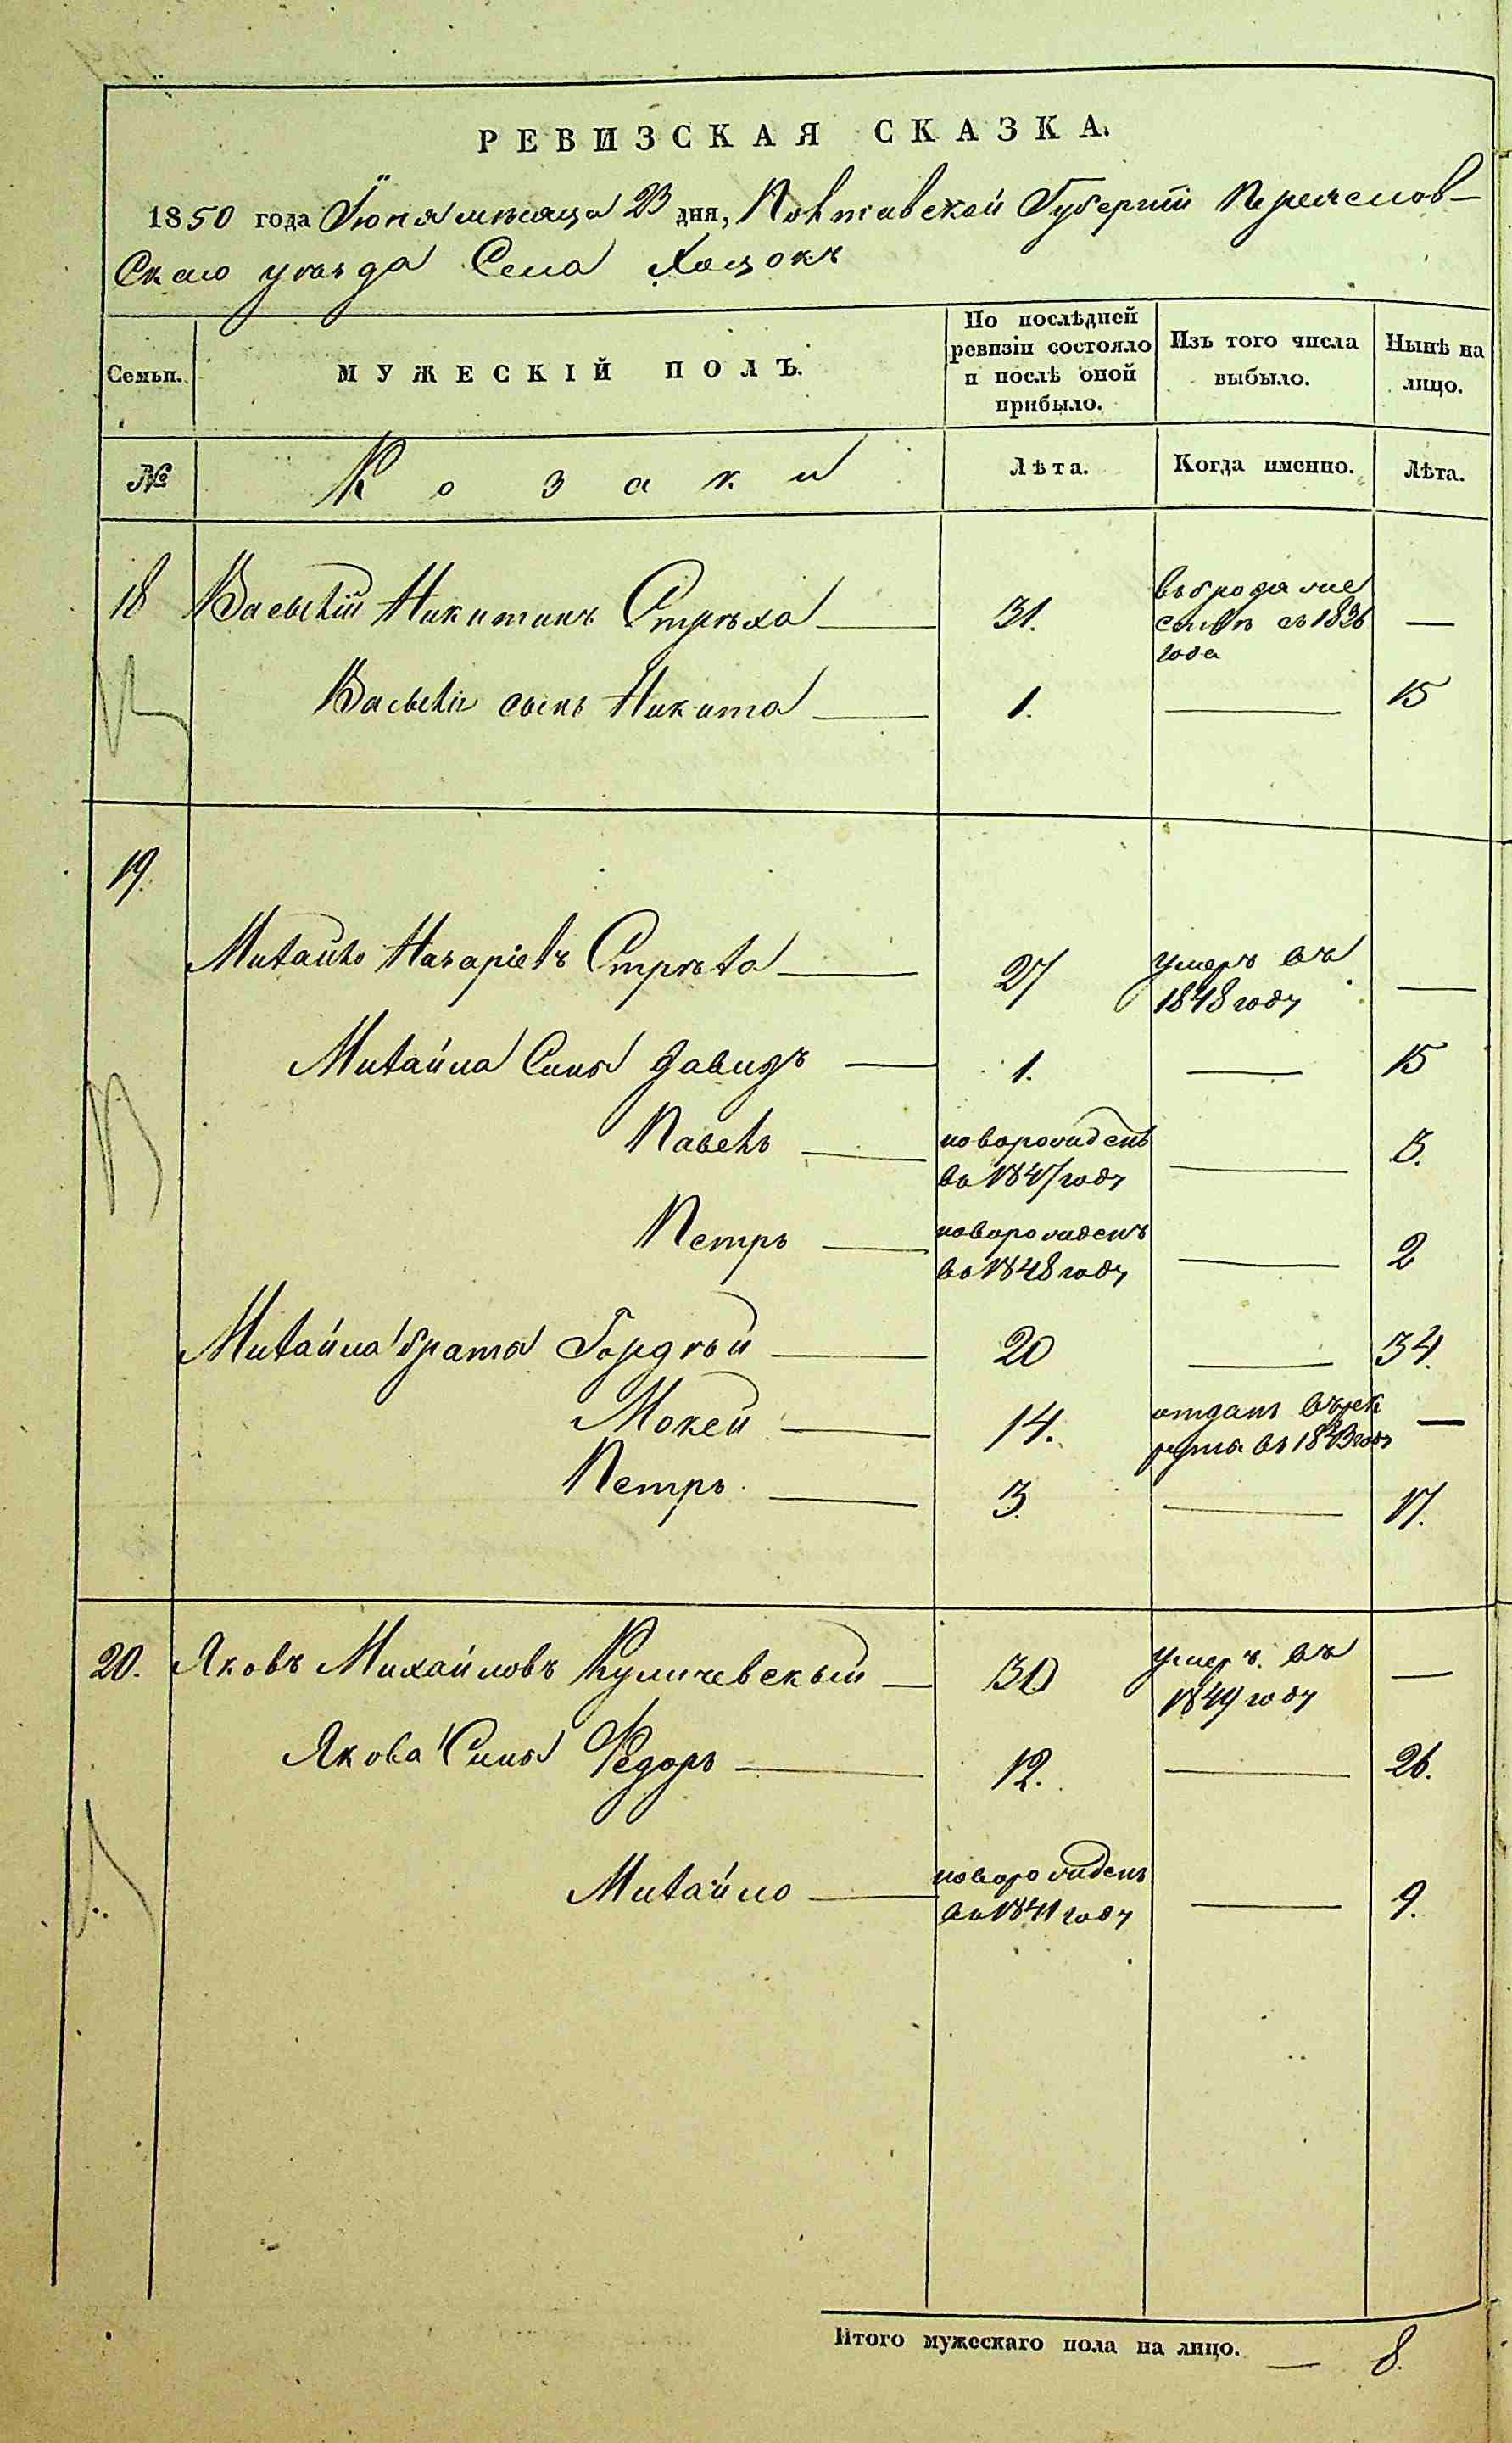 РЕВИЗСКАЯ СКАЗКА.
1850 года Іюня мѣсяца 23 дня, Полтавской Губерніи Переяслов-
Скаго уѣзда Села Хоцокъ
Семьи.
МУЖЕСКІЙ ПОЛЪ.
По послѣдней ревизіи состояло и послѣ оной прибыло.
Изъ того числа выбыло.
Нынѣ на лицо.
№
Козаки
Лѣта.
Когда именно.
Лѣта.
18 Василій Никитинъ Стрѣха — 31. въ бродяже
съ 1836 —
года
Василія сынъ Никита — 1. — 15
19.
Михайло Назаріевъ Стрѣха — 27 умеръ въ —
1848 году
Михайла Сыны Давидъ — 1. — 15
Павелъ — новорожденъ — 3.
въ 1847 году
Петръ — новорожденъ — 2
въ 1848 году
Михайла братья Гордѣй — 20 — 34.
Мокей — 14. отданъ въ рек —
руты въ 1843 году
Петръ. — 3. — 17.
20. Яковъ Михайловъ Куличевскый — 30 умеръ. въ —
1849 году
Якова Сыны Федоръ — 12. — 26.
Михайло — новорожденъ — 9.
въ 1841 году
Итого мужескаго пола на лицо. — 8.